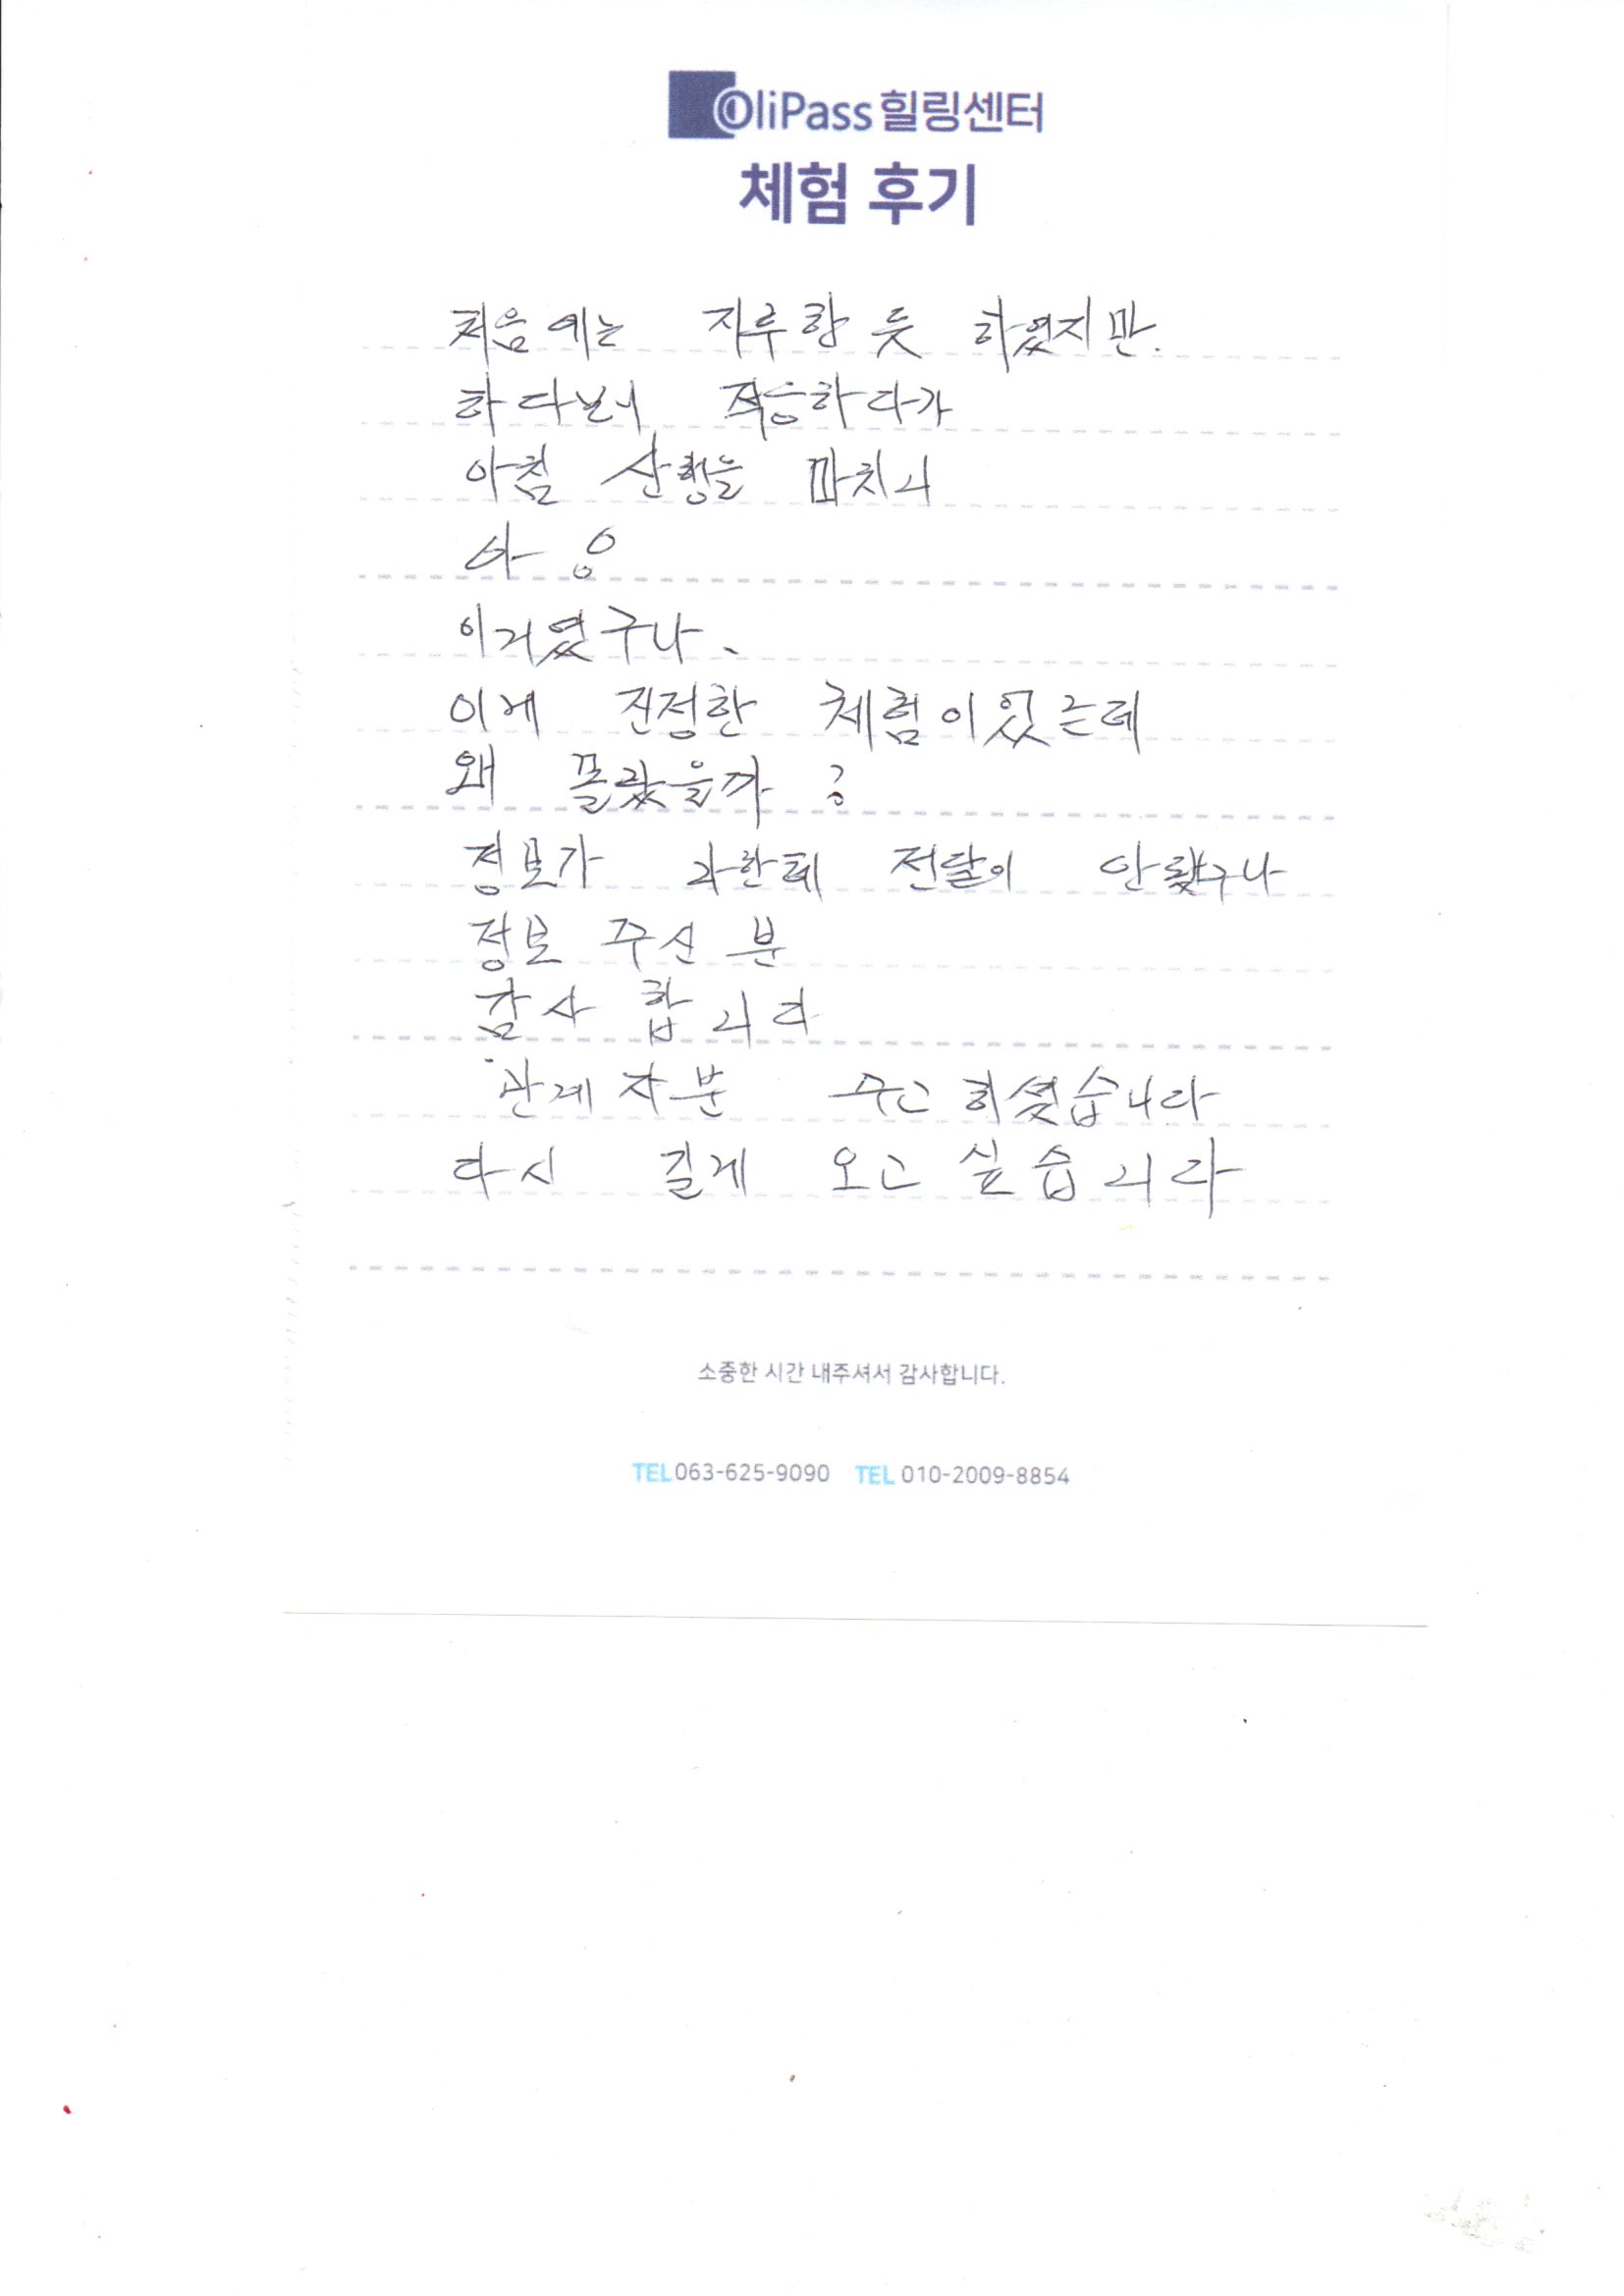 OliPass 힐링센터
체험 후기
처음에는 지루한 듯 하였지만.
하다보니 적응하다가
아침 산행을 마치니
아 응
이거였구나.
이게 진정한 체험이었는데
왜 몰랐을까?
정보가 나한테 전달이 안됐구나
정보 주신 분
감사 합니다
관계자분 수고하셨습니다
다시 길게 오고 싶습니다
소중한 시간 내주셔서 감사합니다.
TEL 063-625-9090 TEL 010-2009-8854